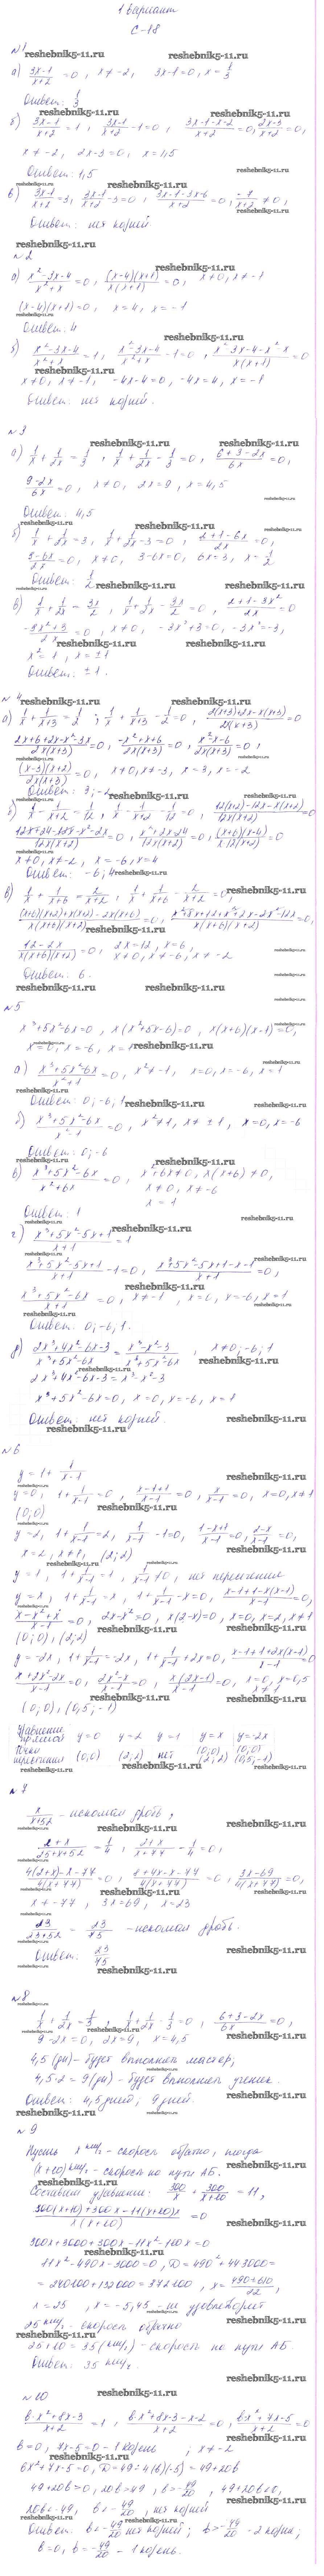 1 вариант
С-18
№1
а) (3x-1)/(x+2) = 0, x ≠ -2, 3x-1=0, x = 1/3
Ответ: 1/3
б) (3x-1)/(x+2) = 1, (3x-1)/(x+2) - 1 = 0, (3x-1-x-2)/(x+2) = 0, (2x-3)/(x+2) = 0,
x ≠ -2, 2x-3=0, x=1,5
Ответ: 1,5
в) (3x-1)/(x+2) = 3, (3x-1)/(x+2) - 3 = 0, (3x-1-3x-6)/(x+2) = 0, -7/(x+2) ≠ 0,
Ответ: нет корней
№2
а) (x²-3x-4)/(x²+x) = 0, (x-4)(x+1)/(x(x+1)) = 0, x≠0, x≠-1
(x-4)(x+1)=0, x=4, x=-1
Ответ: 4
б) (x²-3x-4)/(x²+x) = 1, (x²-3x-4)/(x²+x) - 1 = 0, (x²-3x-4-x²-x)/(x(x+1)) = 0
x≠0, x≠-1, -4x-4=0, -4x=4, x=-1
Ответ: нет корней.
№3
а) 1/x + 1/2x = 1/3, 1/x + 1/2x - 1/3 = 0, (6+3-2x)/6x = 0,
(9-2x)/6x = 0, x≠0, 2x=9, x=4,5
Ответ: 4,5
б) 1/x + 1/2x = 3, 1/x + 1/2x - 3 = 0, (2+1-6x)/2x = 0,
(3-6x)/2x = 0, x≠0, 3-6x=0, 6x=3, x=1/2
Ответ: 1/2
в) 1/x + 1/2x = 3x/2, 1/x + 1/2x - 3x/2 = 0, (2+1-3x²)/2x = 0
(-3x²+3)/2x = 0, x≠0, -3x²+3=0, -3x²=-3,
x²=1, x=±1
Ответ: ±1.
№4
а) 1/x + 1/(x+3) = 1/2; 1/x + 1/(x+3) - 1/2 = 0, (2(x+3)+2x-x(x+3))/(2x(x+3)) = 0
(2x+6+2x-x²-3x)/(2x(x+3)) = 0, (-x²+x+6)/(2x(x+3)) = 0, (x²-x-6)/(2x(x+3)) = 0,
(x-3)(x+2)/(2x(x+3)) = 0, x≠0, x≠-3, x=3, x=-2
Ответ: 3; -2
б) 1/x - 1/(x+2) = 1/12, 1/x - 1/(x+2) - 1/12 = 0, (12(x+2)-12x-x(x+2))/(12x(x+2)) = 0
(12x+24-12x-x²-2x)/(12x(x+2)) = 0, (x²+2x-24)/(12x(x+2)) = 0, (x+6)(x-4)/(12x(x+2)) = 0
x≠0, x≠-2, x=-6, x=4
Ответ: -6; 4
в) 1/x + 1/(x+6) = 2/(x+2), 1/x + 1/(x+6) - 2/(x+2) = 0,
((x+6)(x+2)+x(x+2)-2x(x+6))/(x(x+6)(x+2)) = 0, (x²+8x+12+x²+2x-2x²-12x)/(x(x+6)(x+2)) = 0,
(12-2x)/(x(x+6)(x+2)) = 0, 2x=12, x=6,
x≠0, x≠-6, x≠-2
Ответ: 6.
№5
x³+5x²-6x=0, x(x²+5x-6)=0, x(x+6)(x-1)=0,
x=0, x=-6, x=1
а) (x³+5x²-6x)/(x²+1) = 0, x²≠-1, x=0, x=-6, x=1
Ответ: 0; -6; 1
б) (x³+5x²-6x)/(x²-1) = 0, x²≠1, x≠±1, x=0, x=-6
Ответ: 0; -6
в) (x³+5x²-6x)/(x²+6x) = 0, x²+6x≠0, x(x+6)≠0,
x≠0, x≠-6
x=1
Ответ: 1
г) (x³+5x²-5x+1)/(x+1) = 1
(x³+5x²-5x+1)/(x+1) - 1 = 0, (x³+5x²-5x+1-x-1)/(x+1) = 0,
(x³+5x²-6x)/(x+1) = 0, x≠-1, x=0, x=-6, x=1
Ответ: 0; -6; 1.
д) (2x³+4x²-6x-3)/(x³+5x²-6x) = (x³-x²-3)/(x³+5x²-6x), x≠0; -6; 1
2x³+4x²-6x-3=x³-x²-3
x³+5x²-6x=0, x=0, x=-6, x=1
Ответ: нет корней.
№6
y = 1 + 1/(x-1)
y=0, 1 + 1/(x-1) = 0, (x-1+1)/(x-1) = 0, x/(x-1) = 0, x=0, x≠1
(0; 0)
y=2, 1 + 1/(x-1) = 2, 1/(x-1) - 1 = 0, (1-x+1)/(x-1) = 0, (2-x)/(x-1) = 0,
x=2, x≠1, (2; 2)
y=1, 1 + 1/(x-1) = 1, 1/(x-1) ≠ 0, нет пересечения
y=x, 1 + 1/(x-1) = x, 1 + 1/(x-1) - x = 0, (x-1+1-x(x-1))/(x-1) = 0,
(x-x²+x)/(x-1) = 0, 2x-x²=0, x(2-x)=0, x=0, x=2, x≠1
(0; 0), (2; 2)
y=-2x, 1 + 1/(x-1) = -2x, 1 + 1/(x-1) + 2x = 0, (x-1+1+2x(x-1))/(x-1) = 0
(x+2x²-2x)/(x-1) = 0, (2x²-x)/(x-1) = 0, x(2x-1)/(x-1) = 0, x=0, x=0,5
x≠1
(0; 0), (0,5; -1)
Уравнение прямой y=0 y=2 y=1 y=x y=-2x
Точки пересечения (0;0) (2;2) нет (0;0) (2;2) (0;0) (0,5;-1)
№7
x/(x+52) - искомая дробь,
(2+x)/(25+x+52) = 1/4, (2+x)/(x+77) - 1/4 = 0,
(4(2+x)-x-77)/(4(x+77)) = 0, (8+4x-x-77)/(4(x+77)) = 0, (3x-69)/(4(x+77)) = 0,
x≠-77, 3x=69, x=23
23/(23+52) = 23/75 - искомая дробь.
Ответ: 23/75
№8
1/x + 1/2x = 1/3, 1/x + 1/2x - 1/3 = 0, (6+3-2x)/6x = 0,
9-2x=0, 2x=9, x=4,5
4,5 (дн) - будет выполнять мастер;
4,5·2=9 (дн) - будет выполнять ученик.
Ответ: 4,5 дней; 9 дней.
№9
Пусть x км/ч - скорость обратно, тогда
(x+10) км/ч - скорость на пути АБ.
Составим уравнение: 300/x + 300/(x+10) = 11,
(300(x+10)+300x-11(x+10)x)/(x(x+10)) = 0
300x+3000+300x-11x²-110x=0
11x²-490x-3000=0, D=490²+44·3000=
=240100+132000=372100, x=(490±610)/22,
x=25, x=-5,45 - не удовлетворяет
25 км/ч - скорость обратно
25+10=35 (км/ч) - скорость на пути АБ
Ответ: 35 км/ч.
№10
(bx²+8x-3)/(x+2) = 1, (bx²+8x-3-x-2)/(x+2) = 0, (bx²+7x-5)/(x+2) = 0
b=0, 7x-5=0 - 1 корень; x≠-2
bx²+7x-5=0, D=49-4(b)(-5)=49+20b
49+20b>0, 20b>-49, b>-49/20, 49+20b<0,
20b<-49, b<-49/20, нет корней
Ответ: b<-49/20 нет корней; b>-49/20 - 2 корня;
b=0, b=-49/20 - 1 корень.
reshebnik5-11.ru